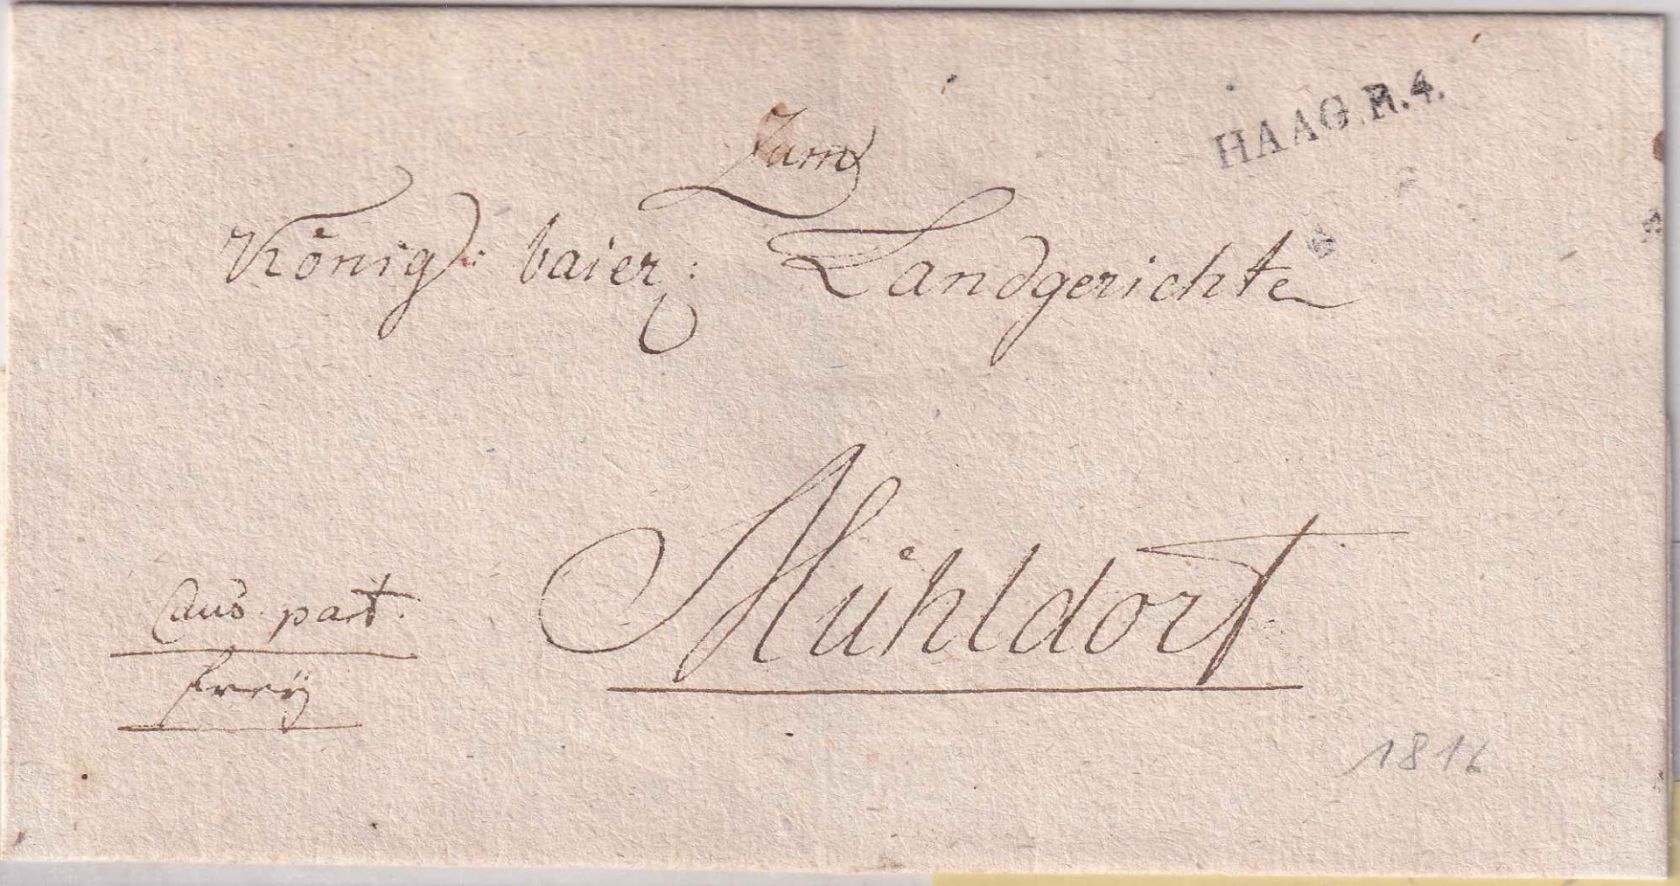 HAAG.R.4.
Zum
Königl: baier: Landgerichte
Mühldorf
Caus. part.
frey
1816